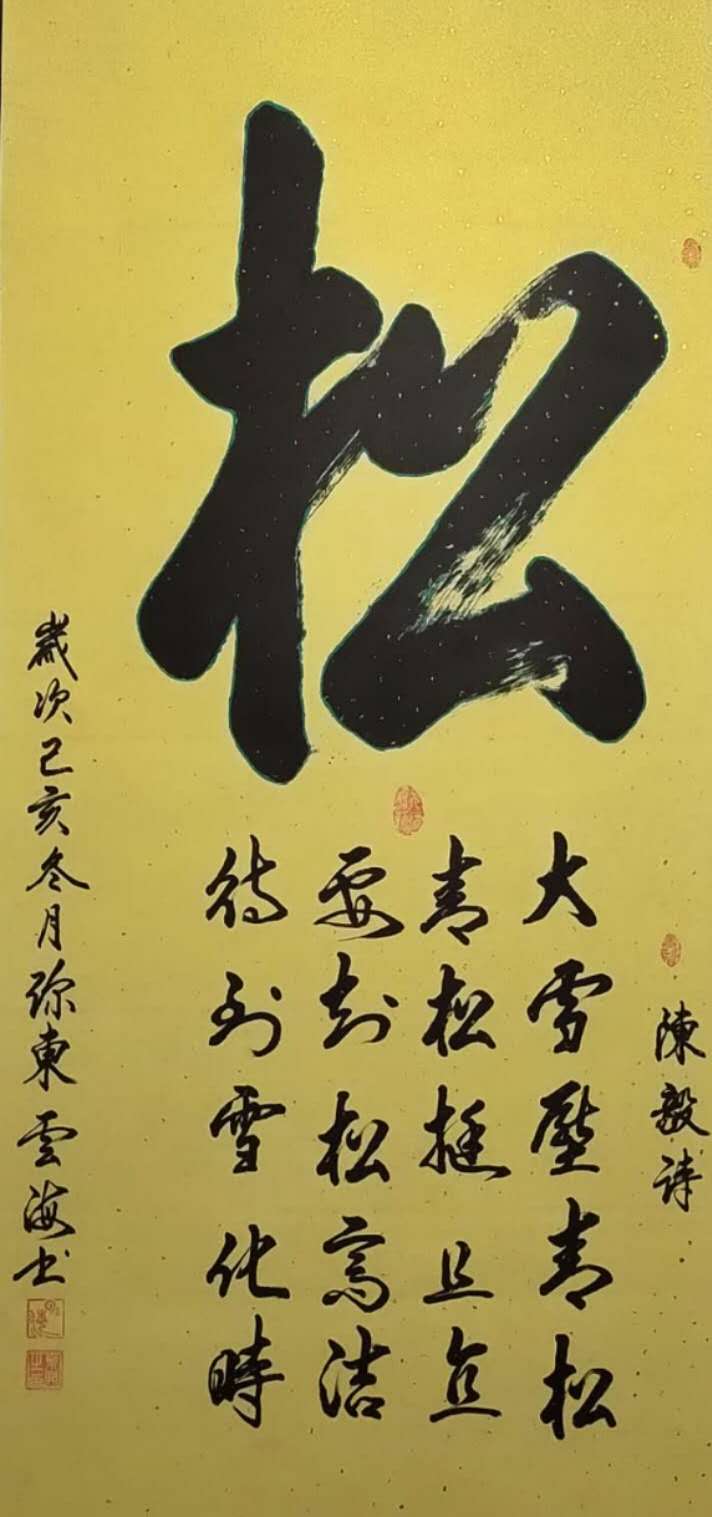 松
陳毅詩
大雪壓青松
青松挺且直
要知松高潔
待到雪化時
歲次己亥冬月弥東雲海书